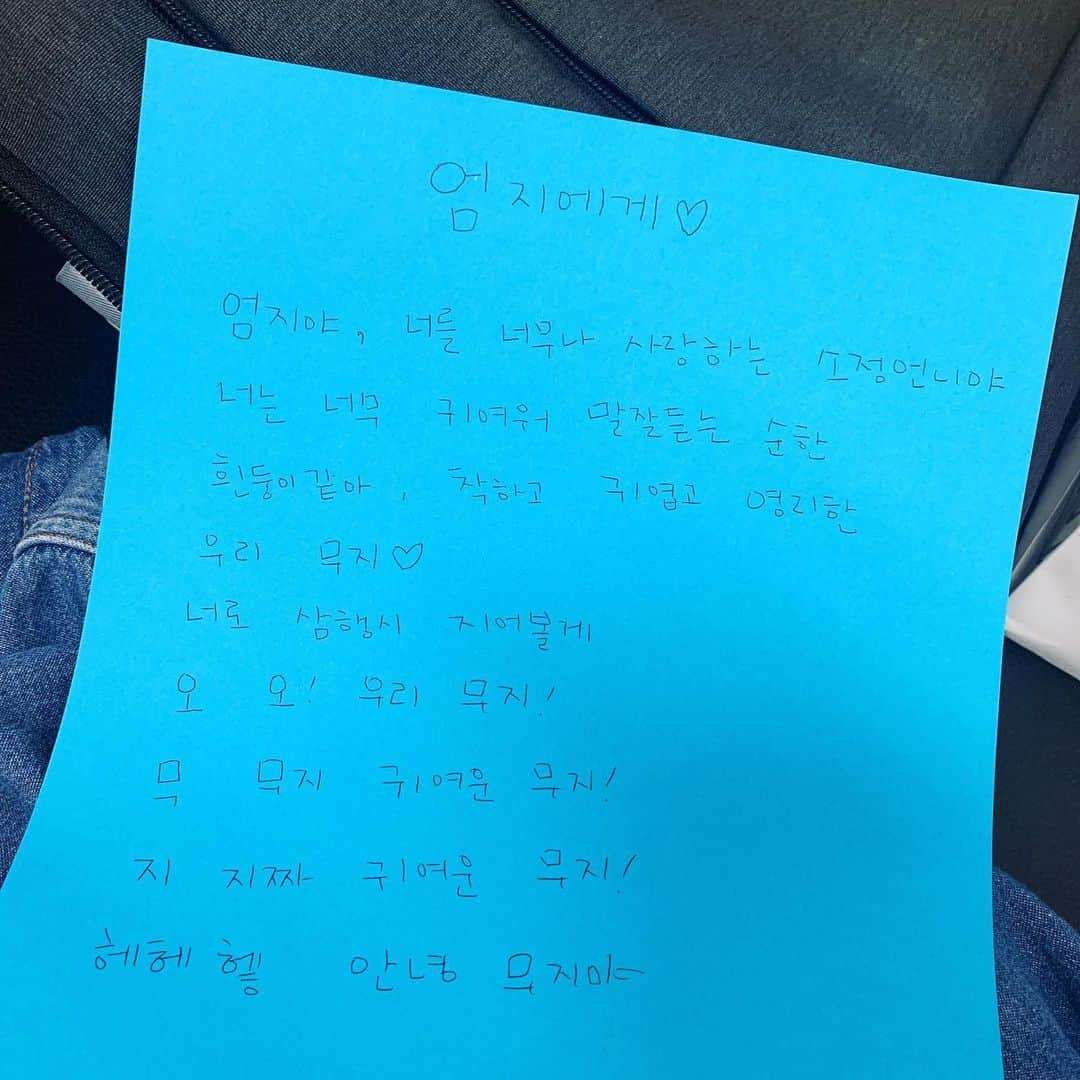 엄지에게♡
엄지야, 너를 너무나 사랑하는 소정언니야
너는 너무 귀여워 말잘듣는 순한
흰둥이같아, 착하고 귀엽고 영리한
우리 무지♡
너로 삼행시 지어볼게
오 오! 우리 무지!
무 무지 귀여운 무지!
지 지짜 귀여운 무지!
헤헤헿 안녕 무지야